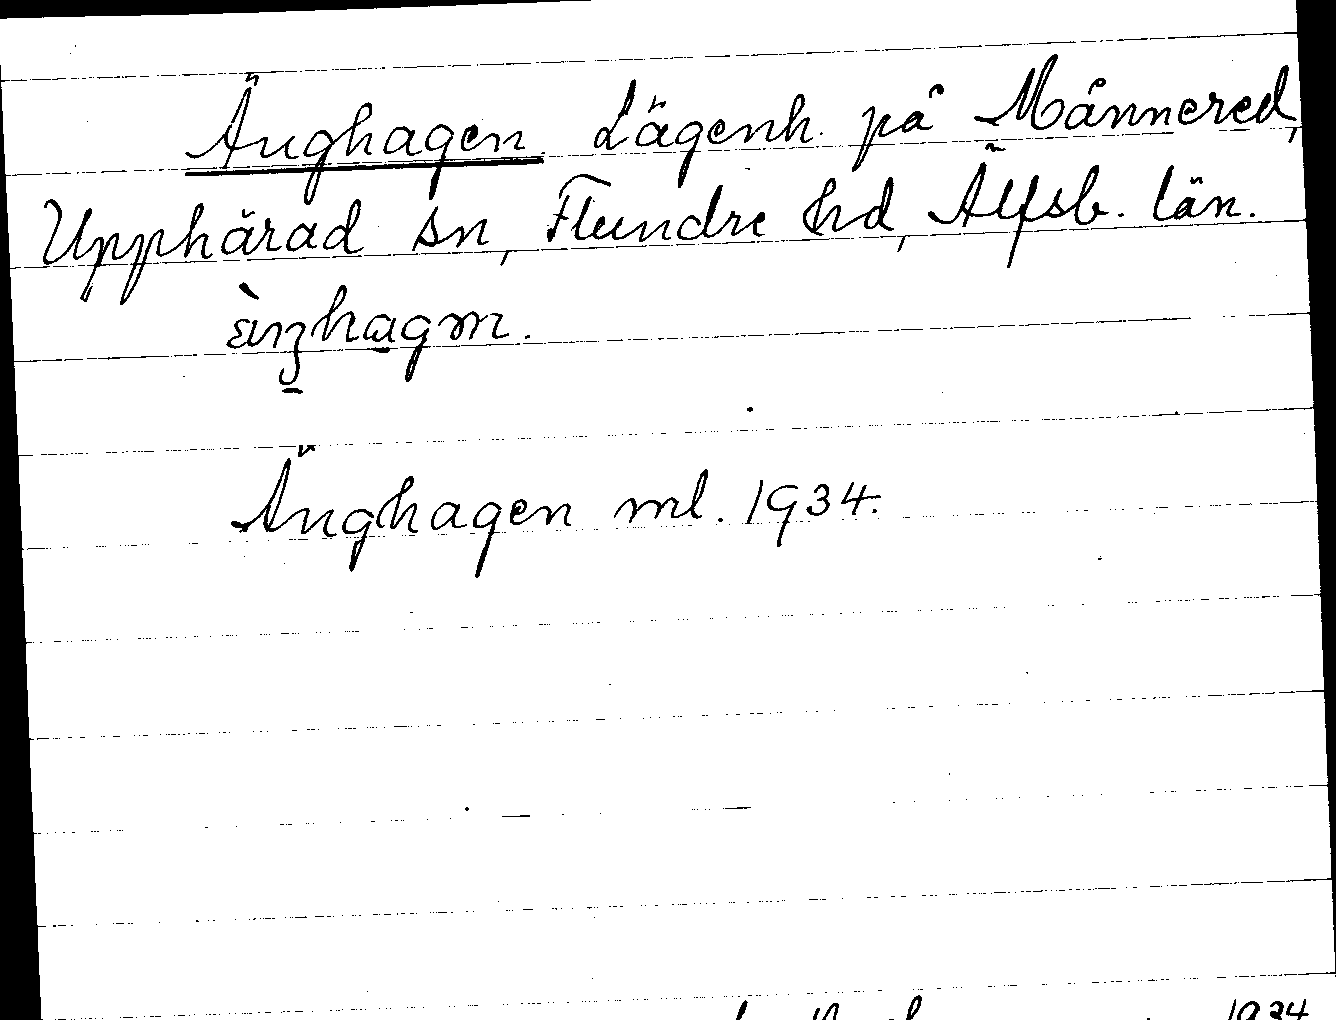 Änghagen. Lägenh. på Månnered,
Upphärad sn, Flundre hd, Älfsb. län.
Änghagen ml. 1934.
1934